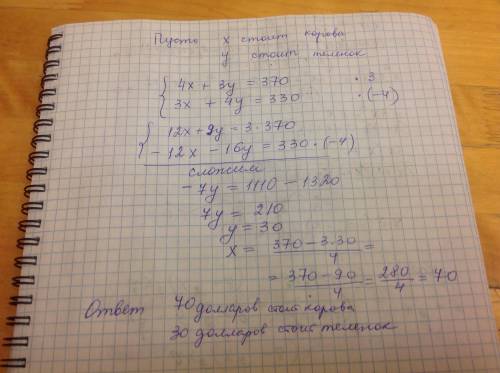 Пусть x стоит корова
y стоит теленок
{ 4x + 3y = 370 · 3
{ 3x + 4y = 330 · (-4)
{ 12x + 9y = 3 · 370
- 12x - 16y = 330 · (-4)
сложим
- 7y = 1110 - 1320
7y = 210
y = 30
x = (370 - 3·30)/4 =
= (370 - 90)/4 = 280/4 = 70
Ответ 70 долларов стоит корова
30 долларов стоит теленок